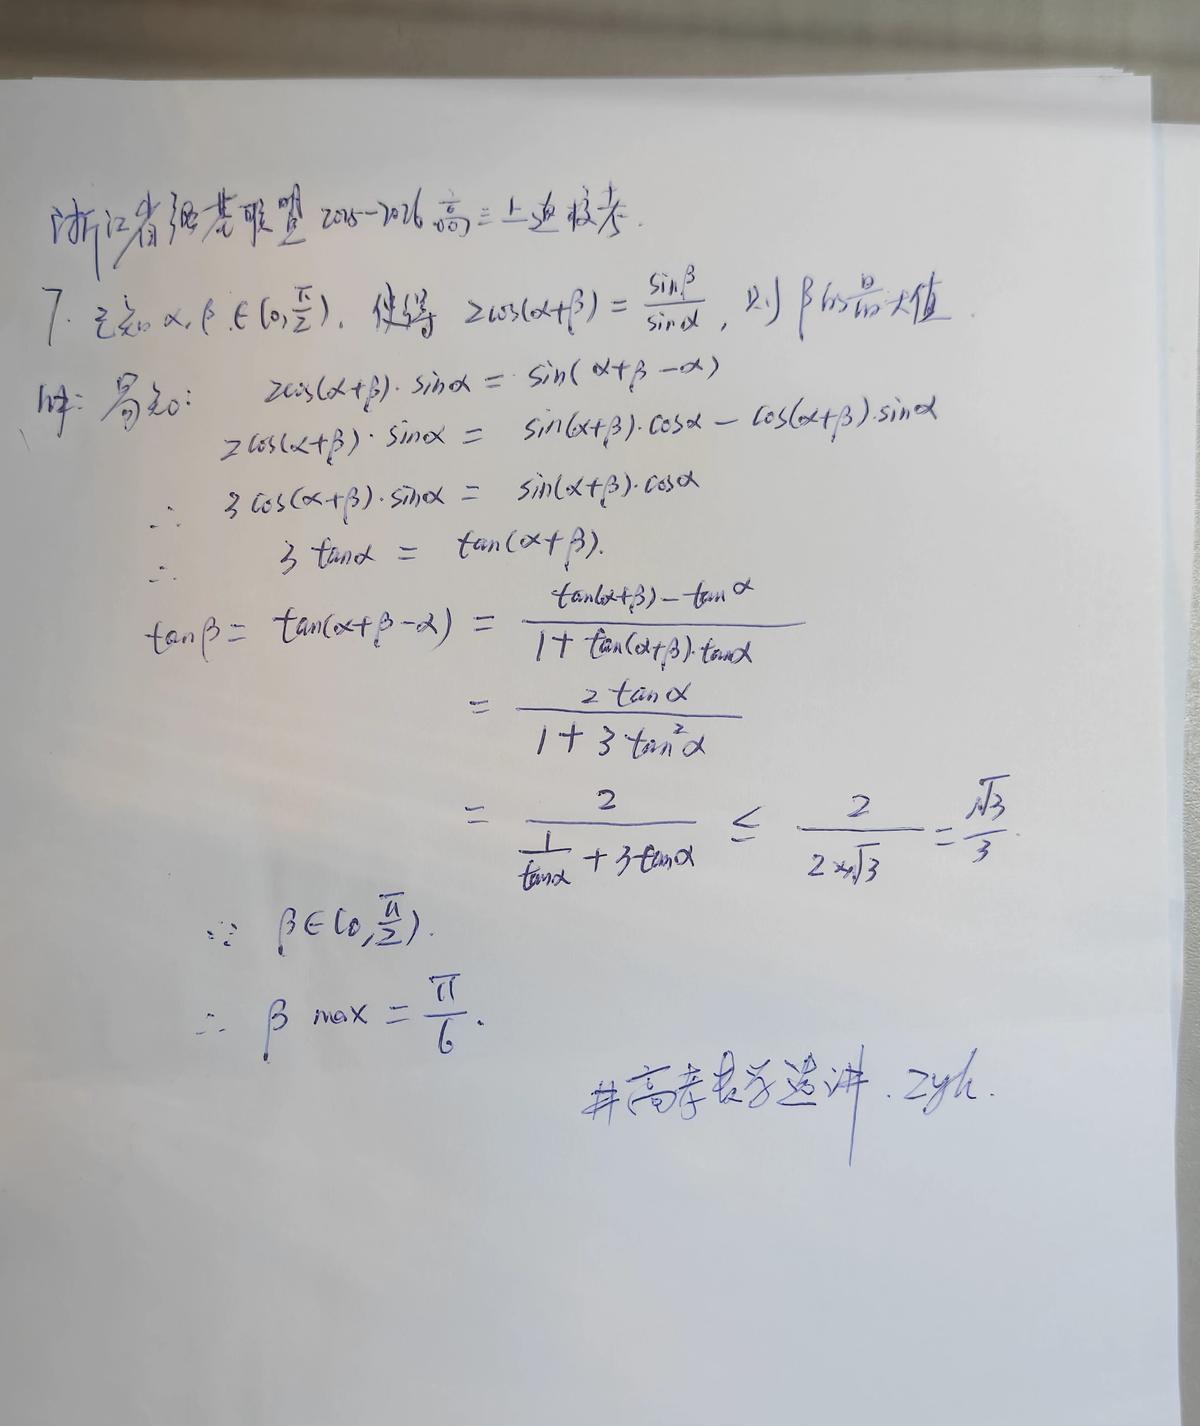 浙江省强基联盟 2025-2026 高三上返校考.
7. 已知 α, β ∈ (0, π/2). 使得 2cos(α+β) = sinβ/sinα, 则 β 的最大值.
解: 易知: 2cos(α+β)·sinα = sin(α+β-α)
2cos(α+β)·sinα = sin(α+β)·cosα - cos(α+β)·sinα
∴ 3cos(α+β)·sinα = sin(α+β)·cosα
∴ 3tanα = tan(α+β).
tanβ = tan(α+β-α) = (tan(α+β)-tanα)/(1+tan(α+β)·tanα)
= 2tanα/(1+3tan²α)
= 2/(1/tanα + 3tanα) ≤ 2/(2×√3) = √3/3.
∵ β ∈ (0, π/2).
∴ β max = π/6.
#高考数学选讲. zyh.